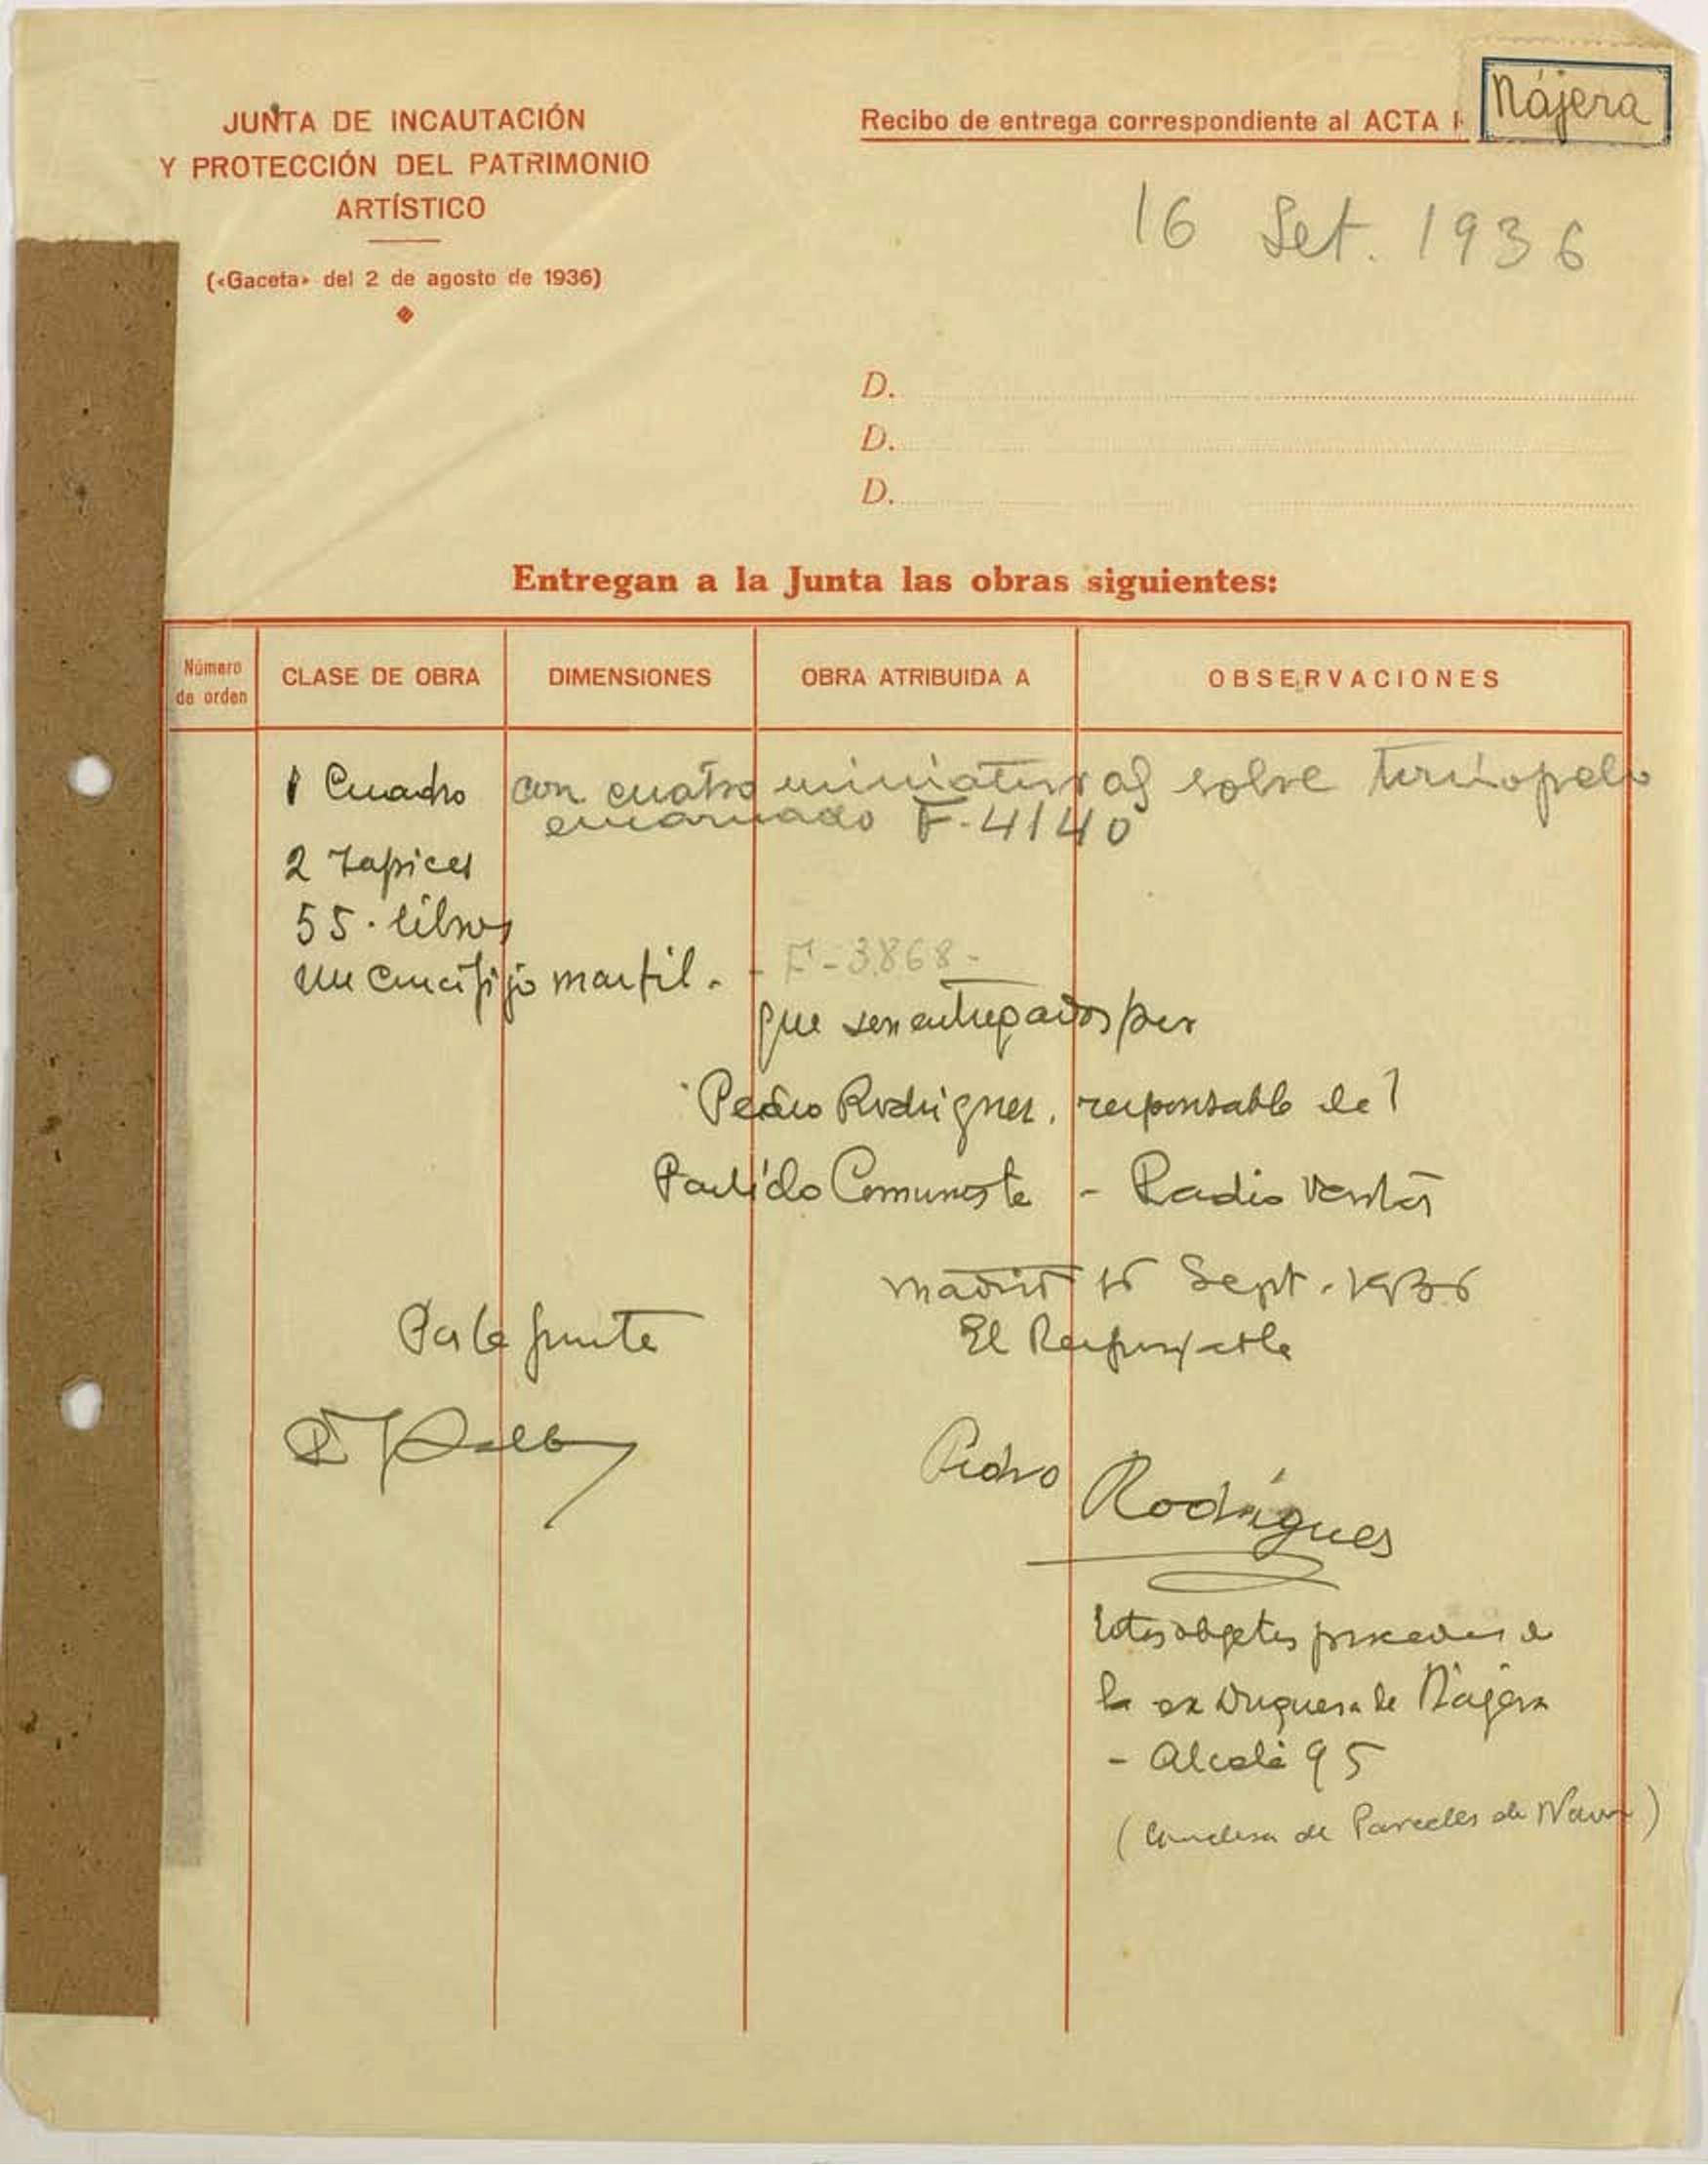 JUNTA DE INCAUTACIÓN
Y PROTECCIÓN DEL PATRIMONIO
ARTÍSTICO
(«Gaceta» del 2 de agosto de 1936)
Recibo de entrega correspondiente al ACTA
Nájera
16 Set. 1936
D.
D.
D.
Entregan a la Junta las obras siguientes:
Número de orden
CLASE DE OBRA
DIMENSIONES
OBRA ATRIBUIDA A
OBSERVACIONES
1 Cuadro con cuatro miniaturas sobre terciopelo
encarnado F-4140
2 tapices
55 · libros
un crucifijo marfil. - F-3868-
que son entregados por
Pedro Rodriguez, responsable del
Partido Comunista - Radio Ventas
Madrid 16 Sept. 1936
Por la Junta
El Responsable
Pedro Rodrigues
Estos objetos proceden de
la ex Duquesa de Nájera
- Alcalá 95
(Condesa de Paredes de Nava)